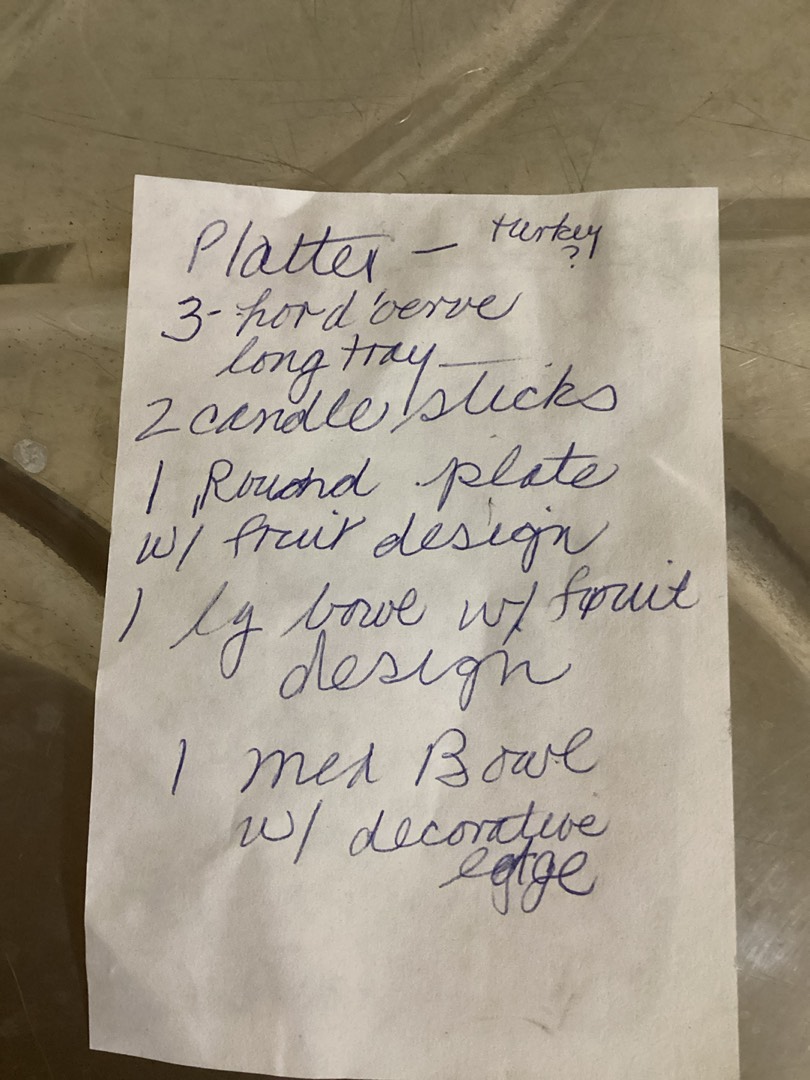 Platter - turkey ?
3- hor d'oerve
long tray
2 candle sticks
1 Round plate
w/ fruit design
1 lg bowl w/ fruit
design
1 med Bowl
w/ decorative
edge